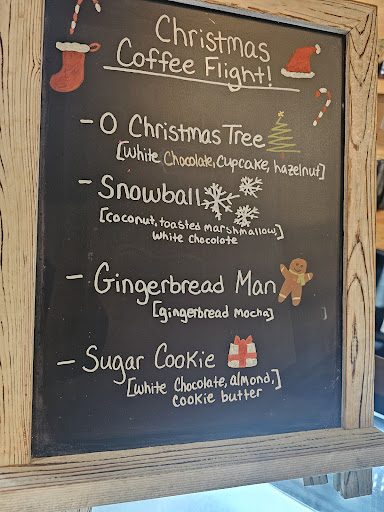 Christmas
Coffee Flight!
- O Christmas Tree
[White Chocolate, Cupcake, hazelnut]
- Snowball
[coconut, toasted marshmallow,]
white chocolate
- Gingerbread Man
[gingerbread mocha]
- Sugar Cookie
[White Chocolate, almond,]
cookie butter